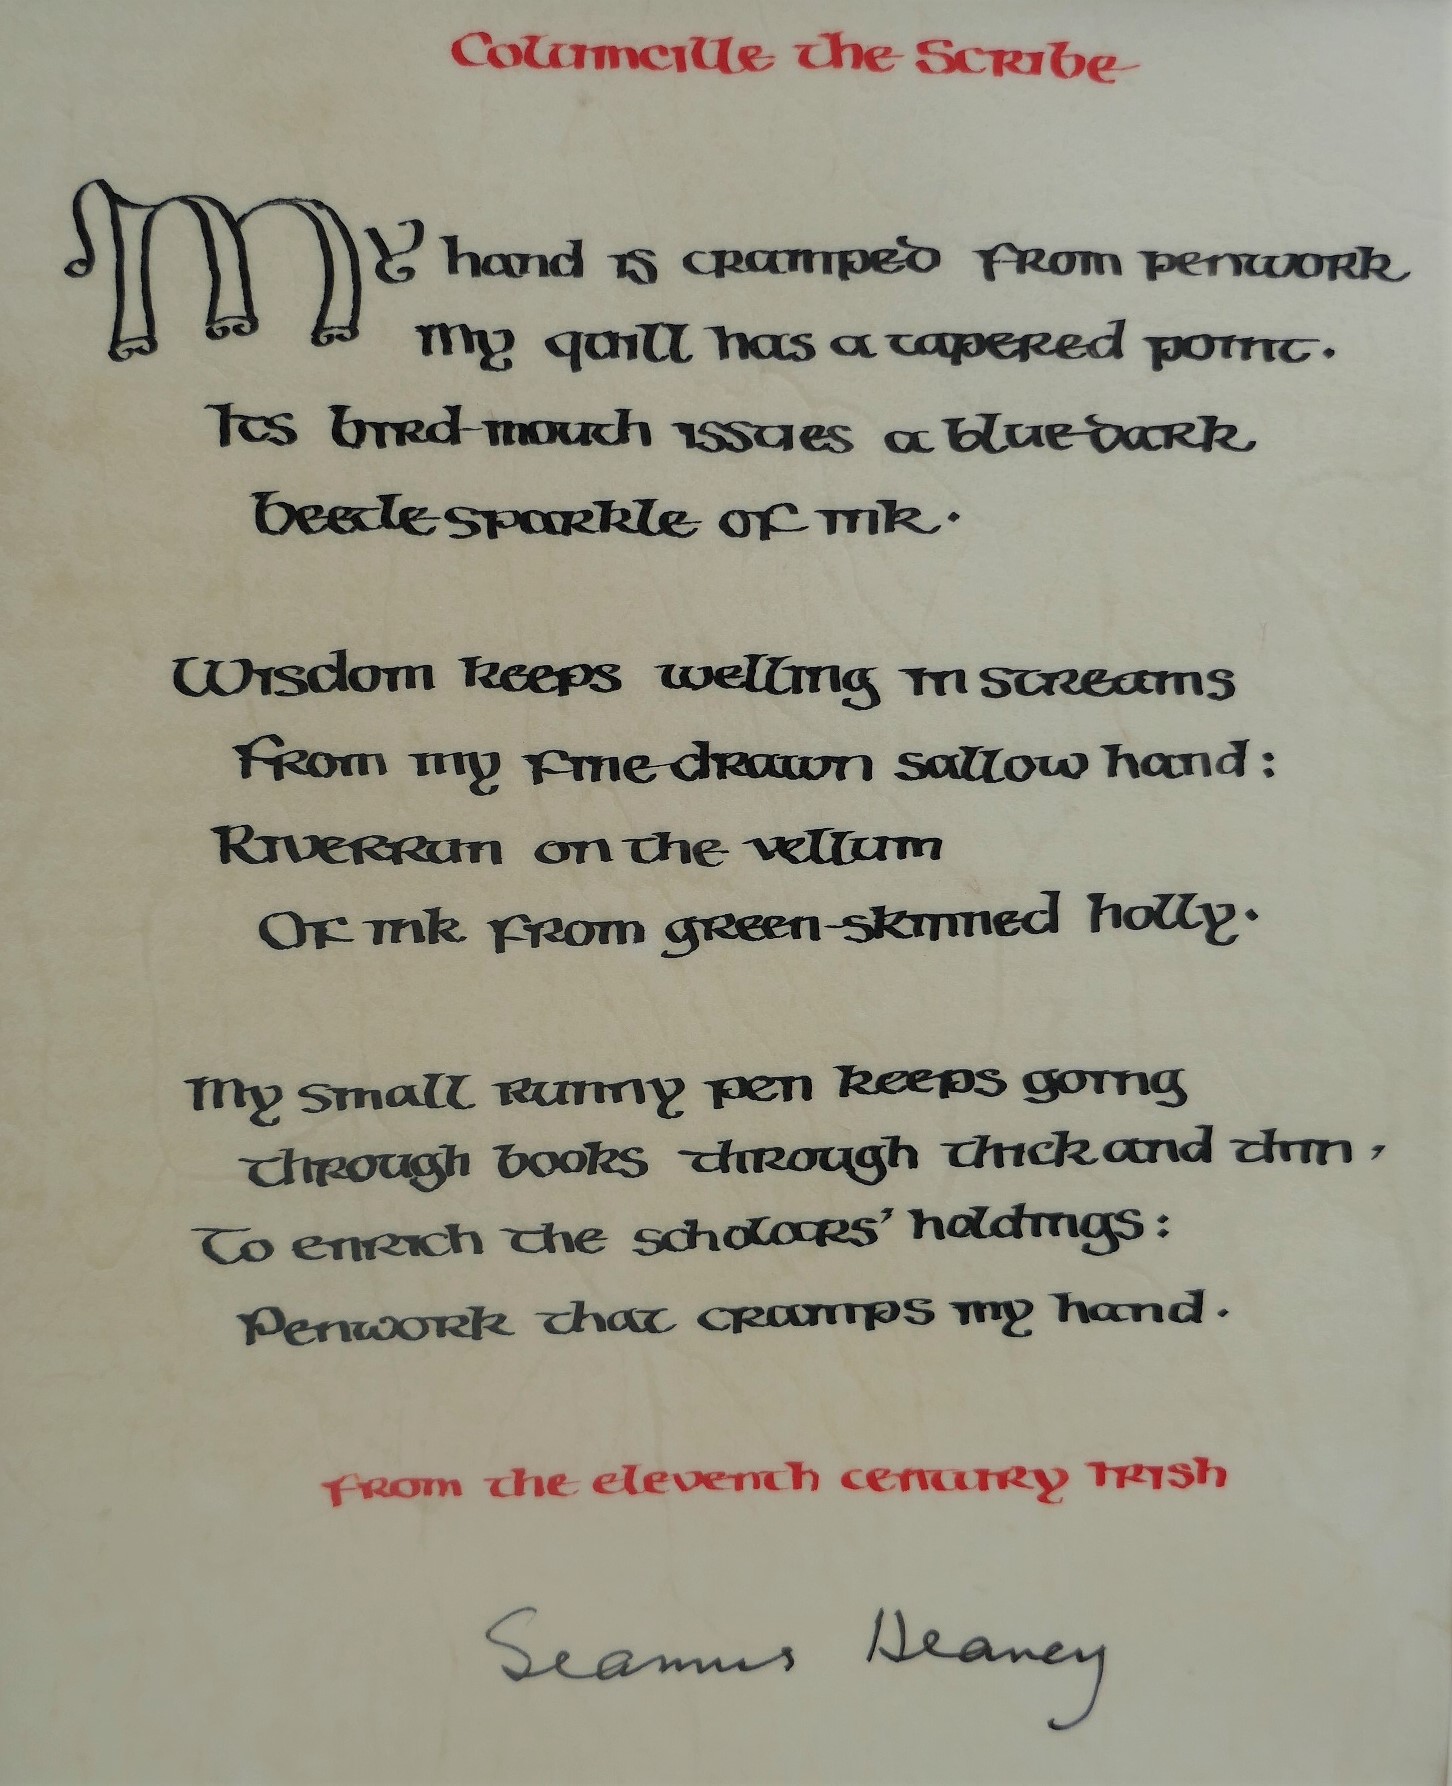 Columcille the Scribe
My hand is cramped from penwork
My quill has a tapered point.
Its bird-mouth issues a blue-dark
beetle sparkle of ink.
Wisdom keeps welling in streams
From my fine-drawn sallow hand:
Riverrun on the vellum
Of ink from green-skinned holly.
My small runny pen keeps going
through books through thick and thin,
To enrich the scholars' holdings:
Penwork that cramps my hand.
from the eleventh century Irish
Seamus Heaney